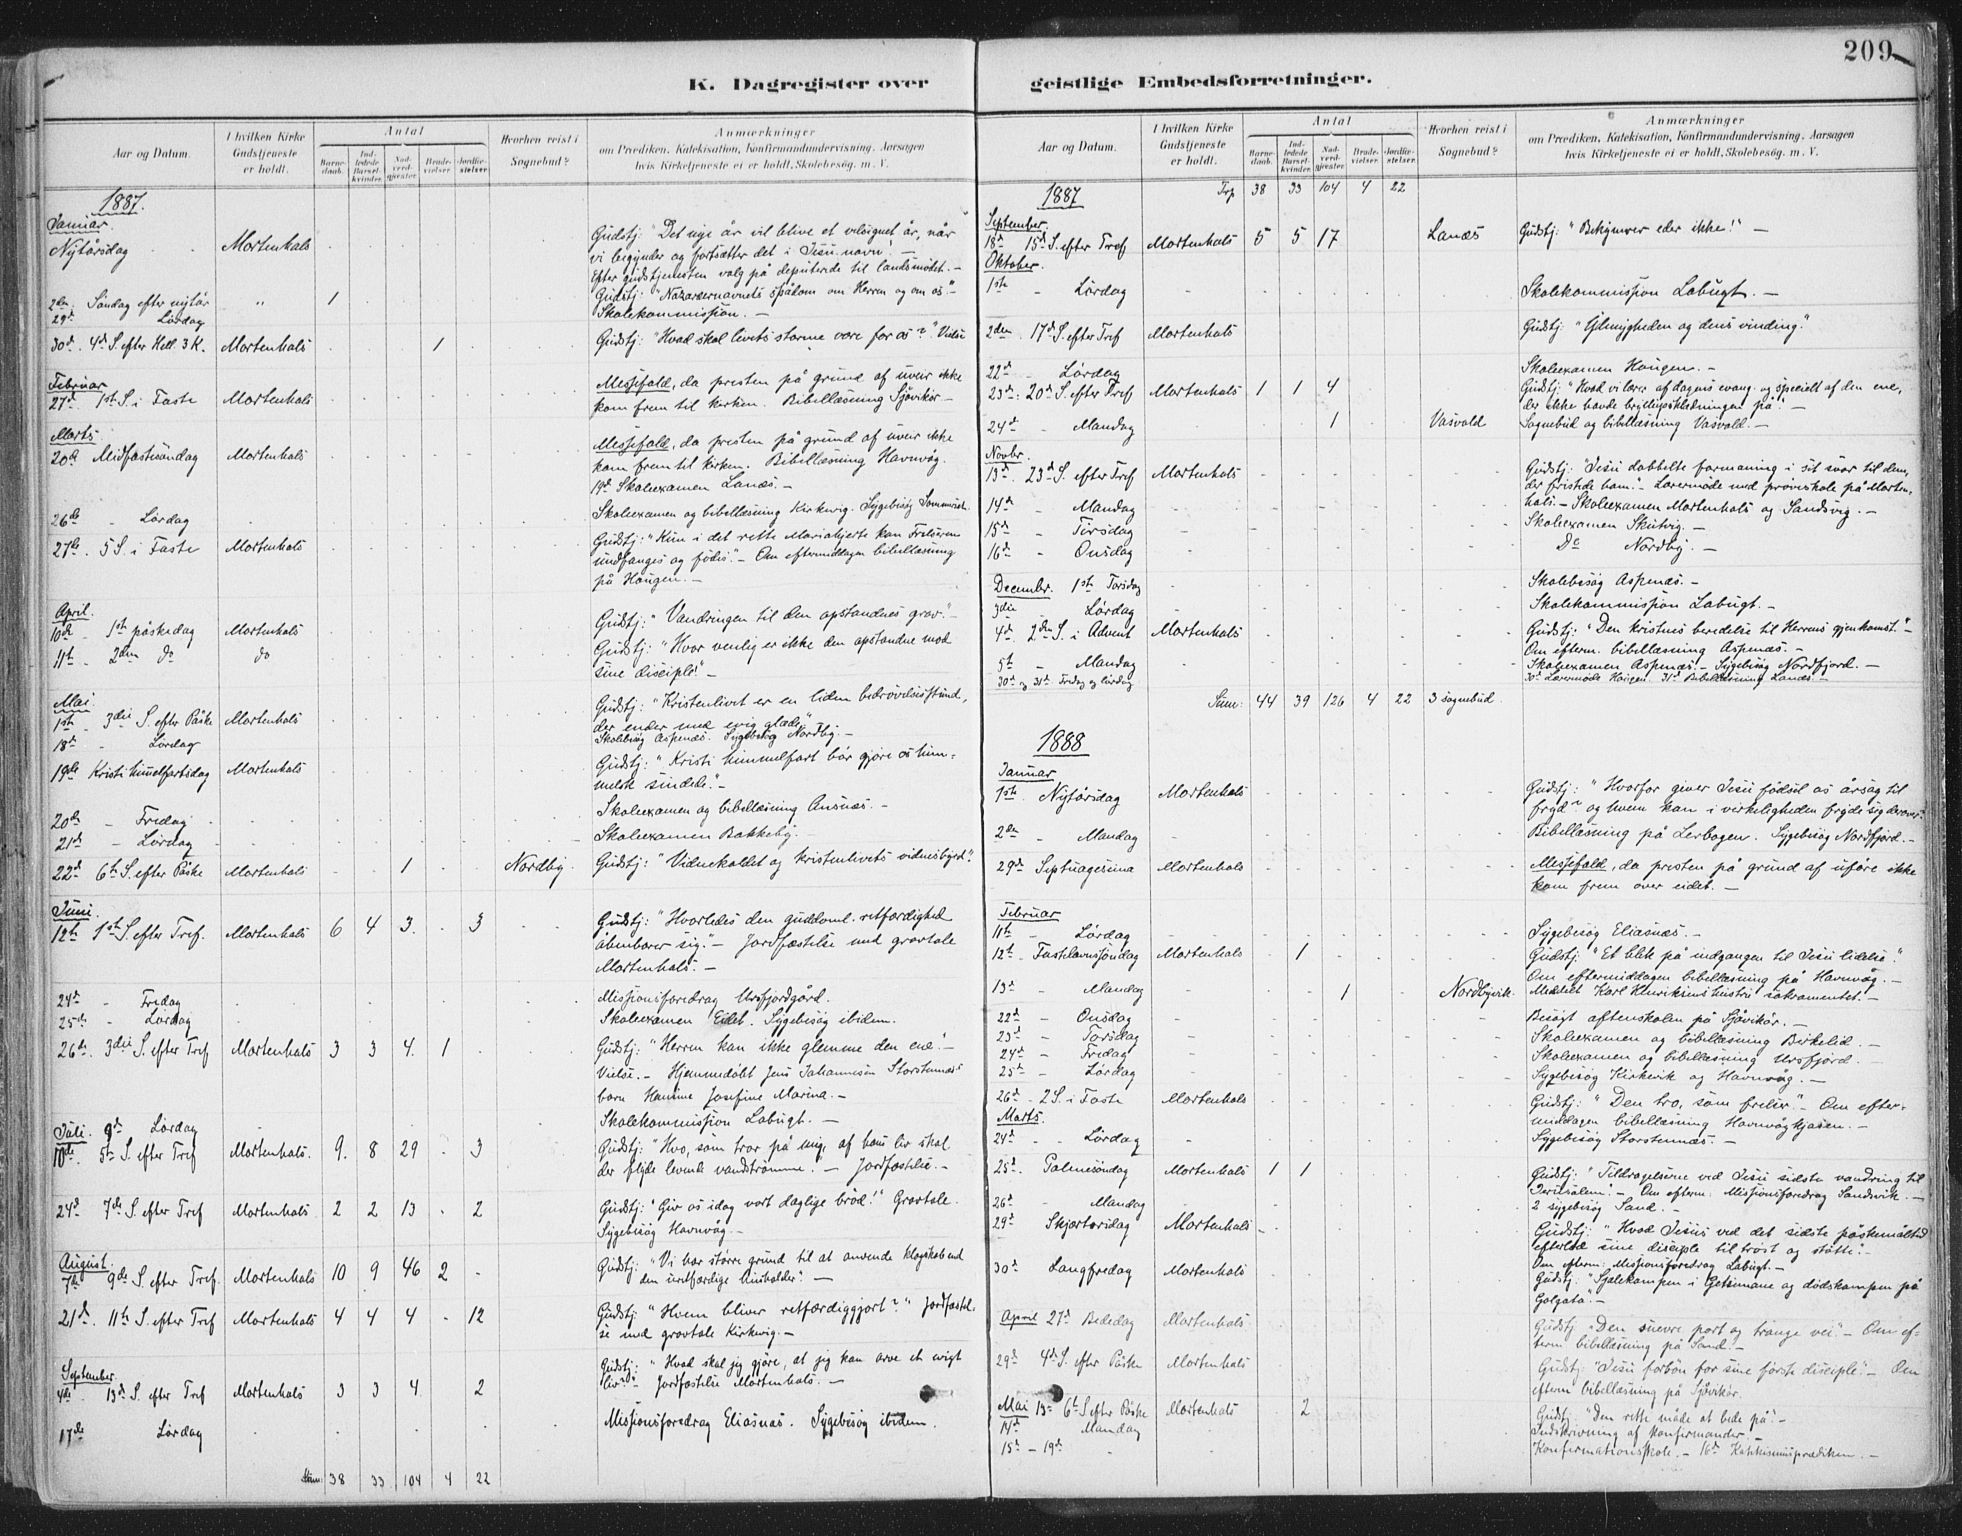 209
K. Dagregister over geistlige Embedsforretninger.
Aar og Datum.
I hvilken Kirke Gudstjeneste er holdt.
Antal
Barnedaab.
Indledede Barselkvinder.
Nadverdgjester.
Brudevielser.
Jordfæstelser.
Hvorhen reist i Sognebud?
Anmærkninger
om Prædiken, Katekisation, Konfirmandundervisning, Aarsagen
hvis Kirketjeneste ei er holdt, Skolebesøg. m. V.
1887.
Januar.
Nytårsdag Mortenhals Gudstj: "Det nye år vil blive et velsignet år, når
vi begynder og fortsætter det i Jesu navn". —
Efter gudstjenesten valg på deputerede til landsmødet. —
2den Søndag efter nytår " 1 Gudstj: "Nazaræernavnets spådom om Herren og om os". —
29d Lørdag Skolekommission. —
30d. 4d S. efter Hell. 3 K. Mortenhals 1 Gudstj: "Hvad skal livets storme være for os?" Vielse
Februar
27d 1st S. i Faste Mortenhals Messefald, da presten på grund af uveir ikke
kom frem til kirken. Bibellæsning Sjøvikør —
Marts
20de Midfastesøndag Mortenhals Messefald, da presten på grund af uveir ikke
kom frem til kirken. Bibellæsning Havnvåg.
19d Skoleexamen Lanæs. —
26de - Lørdag Skoleexamen og bibellæsning Kirkvig. Sygebesøg
27de. 5 S. i Faste Mortenhals Gudstj: "Kun i det rette Mariahjerte kan Frelseren
undfanges og fødes". — Om eftermiddagen bibellæsning
på Haugen. —
April.
10de - 1st påskedag Mortenhals Gudstj: "Vandringen til den opstandnes grav". —
11te - 2den do do Gudstj: "Hvor venlig er ikke den opstandne mod
sine disciple!" —
Mai
1st - 3die S. efter Påske Mortenhals Gudstj: "Kristenlivet er en liden bedrøvelsesstund,
der ender med evig glæde".
18d - Lørdag Skolebesøg Aspenæs. Sygebesøg Nordby. —
19de Kristi himmelfartsdag Mortenhals Gudstj: "Kristi himmelfart bør gjøre os him-
melsk sindede". —
20de - Fredag Skoleexamen og bibellæsning Ansnæs. —
21de - Lørdag Skoleexamen Bakkeby. —
22d 6te S. efter Påske Mortenhals 1 Nordby. Gudstj: "Vidnekaldet og kristenlivets vidnesbyrd".
Juni.
12te 1st S. efter Tref. Mortenhals 6 4 3 3 Gudstj: "Hvorledes den guddoml. retfærdighed
åbenbarer sig". — Jordfæstelse med gravtale
Mortenhals. —
24d - Fredag Missionsforedrag Ursfjordgård.
25de - Lørdag Skoleexamen Eidet. Sygebesøg ibidem.
26de. 3die S. efter Tref Mortenhals 3 3 4 1 Gudstj: "Herren kan ikke glemme den ene". —
Vielse. — Hjemmedøbt Jens Johannesen Storstennæs
barn Hanine Josefine Marina. —
Juli. 9d Lørdag Skolekommission Labugt. —
10de 5te S. efter Tref Mortenhals. 9 8 29 3 Gudstj: "Hvo, som tror på mig, af hans liv skal
der flyde levende vandstrømme. — Jordfæstelse. —
24d 7de S. efter Tref Mortenhals 2 2 13 2 Gudstj: "Giv os idag vort daglige brød!" Gravtale.
Sygebesøg Havnvåg. —
August.
7de 9de S. efter Tref. Mortenhals 10 9 46 2 Gudstj: "Vi har større grund til at anvende klogskab end
den uretfærdige husholder". —
21d. 11te S. efter Tref Mortenhals 4 4 4 12 Gudstj: "Hvem bliver retfærdiggjort?" Jordfæstel-
se med gravtale Kirkvig. —
September.
4de. 13d S. efter Tref Mortenhals 3 3 4 2 Gudstj: "Hvad skal jeg gjøre, at jeg kan arve et evigt
liv?" Jordfæstelse Mortenhals. —
17de Lørdag Missionsforedrag Eliasnæs. Sygebesøg ibidem.
Sum: 38 33 104 4 22
Aar og Datum.
I hvilken Kirke Gudstjeneste er holdt.
Antal
Barnedaab.
Indledede Barselkvinder.
Nadverdgjester.
Brudevielser.
Jordfæstelser.
Hvorhen reist i Sognebud?
Anmærkninger
om Prædiken, Katekisation, Konfirmandundervisning, Aarsagen
hvis Kirketjeneste ei er holdt, Skolebesøg. m. V.
1887 Trp 38 33 104 4 22
September.
18d 15d S. efter Tref Mortenhals 5 5 17 Lanæs Gudstj: "Bekymrer eder ikke!" —
Oktober.
1ste - Lørdag Skolekommission Labugt. —
2den. 17d S. efter Tref Mortenhals Gudstj: "Ydmygheden og dens vinding."
22d - Lørdag Skoleexamen Haugen. —
23de: 20de S. efter Tref. Mortenhals 1 1 4 Gudstj: "Hvad vi lærer af dagens evang. og specielt af den ene,
der ikke havde bryllupsklædningen på". —
24d - Mandag 1 Vasvold Sognebud og bibellæsning Vasvold. —
Novbr.
13de. 23d S. efter Tref Mortenhals Gudstj: "Jesu dobbelte formaning i sit svar til dem,
der fristede ham". — Læremøde med prøveskole på Morten-
14de - Mandag hals. — Skoleexamen Mortenhals og Sandsvig. —
15de - Tirsdag Skoleexamen Skutvig. —
16de - Onsdag Do Nordby. —
December. 1st Torsdag Skolebesøg Aspenæs. —
3die Lørdag Skolekommission Labugt. —
4d. 2den S. i Advent Mortenhals Gudstj: "Den kristnes beredelse til Herrens gjenkomst". —
Om efterm. bibellæsning Aspenæs. —
5te - Mandag Skoleexamen Aspenæs. — Sygebesøg Nordfjord. —
30d og 31d Fredag og lørdag 30d Læremøde Haugen. 31d Bibellæsning Lanæs —
Sum: 44 39 126 4 22 3 sognebud.
1888
Januar
1ste. Nytårsdag Mortenhals Gudstj: "Hvorfor giver Jesu fødsel os årsag til
fryd? og hvem kan i virkeligheden fryde sig derover".
2den - Mandag Bibellæsning på Lerbogen. Sygebesøg Nordfjord. —
29d Septuagesima Mortenhals Messefald, da presten på grund af uføre ikke
kom frem over eidet. —
Februar
11te - Lørdag Sygebesøg Eliasnæs. —
12te - Fastelavnssøndag Mortenhals 1 Gudstj: "Et blik på indgangen til Jesu lidelse".
Om eftermiddagen bibellæsning på Havnvåg. —
13d - Mandag 1 Nordbyvik. Meddelt Karl Henriksens hustru sakramentet. —
22d - Onsdag Besøgt aftenskolen på Sjøvikør. —
23d - Torsdag Skoleexamen og bibellæsning Birkelid. —
24d - Fredag Skoleexamen og bibellæsning Ursfjord. —
25d - Lørdag Sygebesøg Kirkevik og Havnvåg. —
26d - 2 S. i Faste Mortenhals Gudstj: "Den tro, som frelser". — Om efter-
middagen bibellæsning Havnvågkjosen. —
Marts.
24d - Lørdag Sygebesøg Storstennæs. —
25d. Palmesøndag Mortenhals 1 1 Gudstj: "Tildragelserne ved Jesu sidste vandring til
Jerusalem. — Om efterm: Missionsforedrag Sandsvik. —
26d - Mandag 2 sygebesøg Sand. —
29d Skjærtorsdag Mortenhals Gudstj: "Hvad Jesus ved det sidste påskemåltid
efterlod sine disciple til trøst og støtte". —
Om efterm: Missionsforedrag Labugt. —
30d Langfredag Mortenhals Gudstj: "Sjælekampen i Getsemane og dødskampen på
Golgata". —
April 27d Bededag Mortenhals Gudstj: "Den snevre port og trange vei". — Om ef-
term bibellæsning på Sand. —
29d 4d S. efter Påske Mortenhals Gudstj: "Jesu forbøn for sine første disciple". — Om
efterm bibellæsning på Sjøvikør.
Mai 13d 6te S. efter Påske Mortenhals 2 Gudstj: "Den rette måde at bede på". —
14d Mandag Indskrivning af konfirmander. —
15d - 19d Konfirmationsskole. — 16d Katekismusprædiken. —